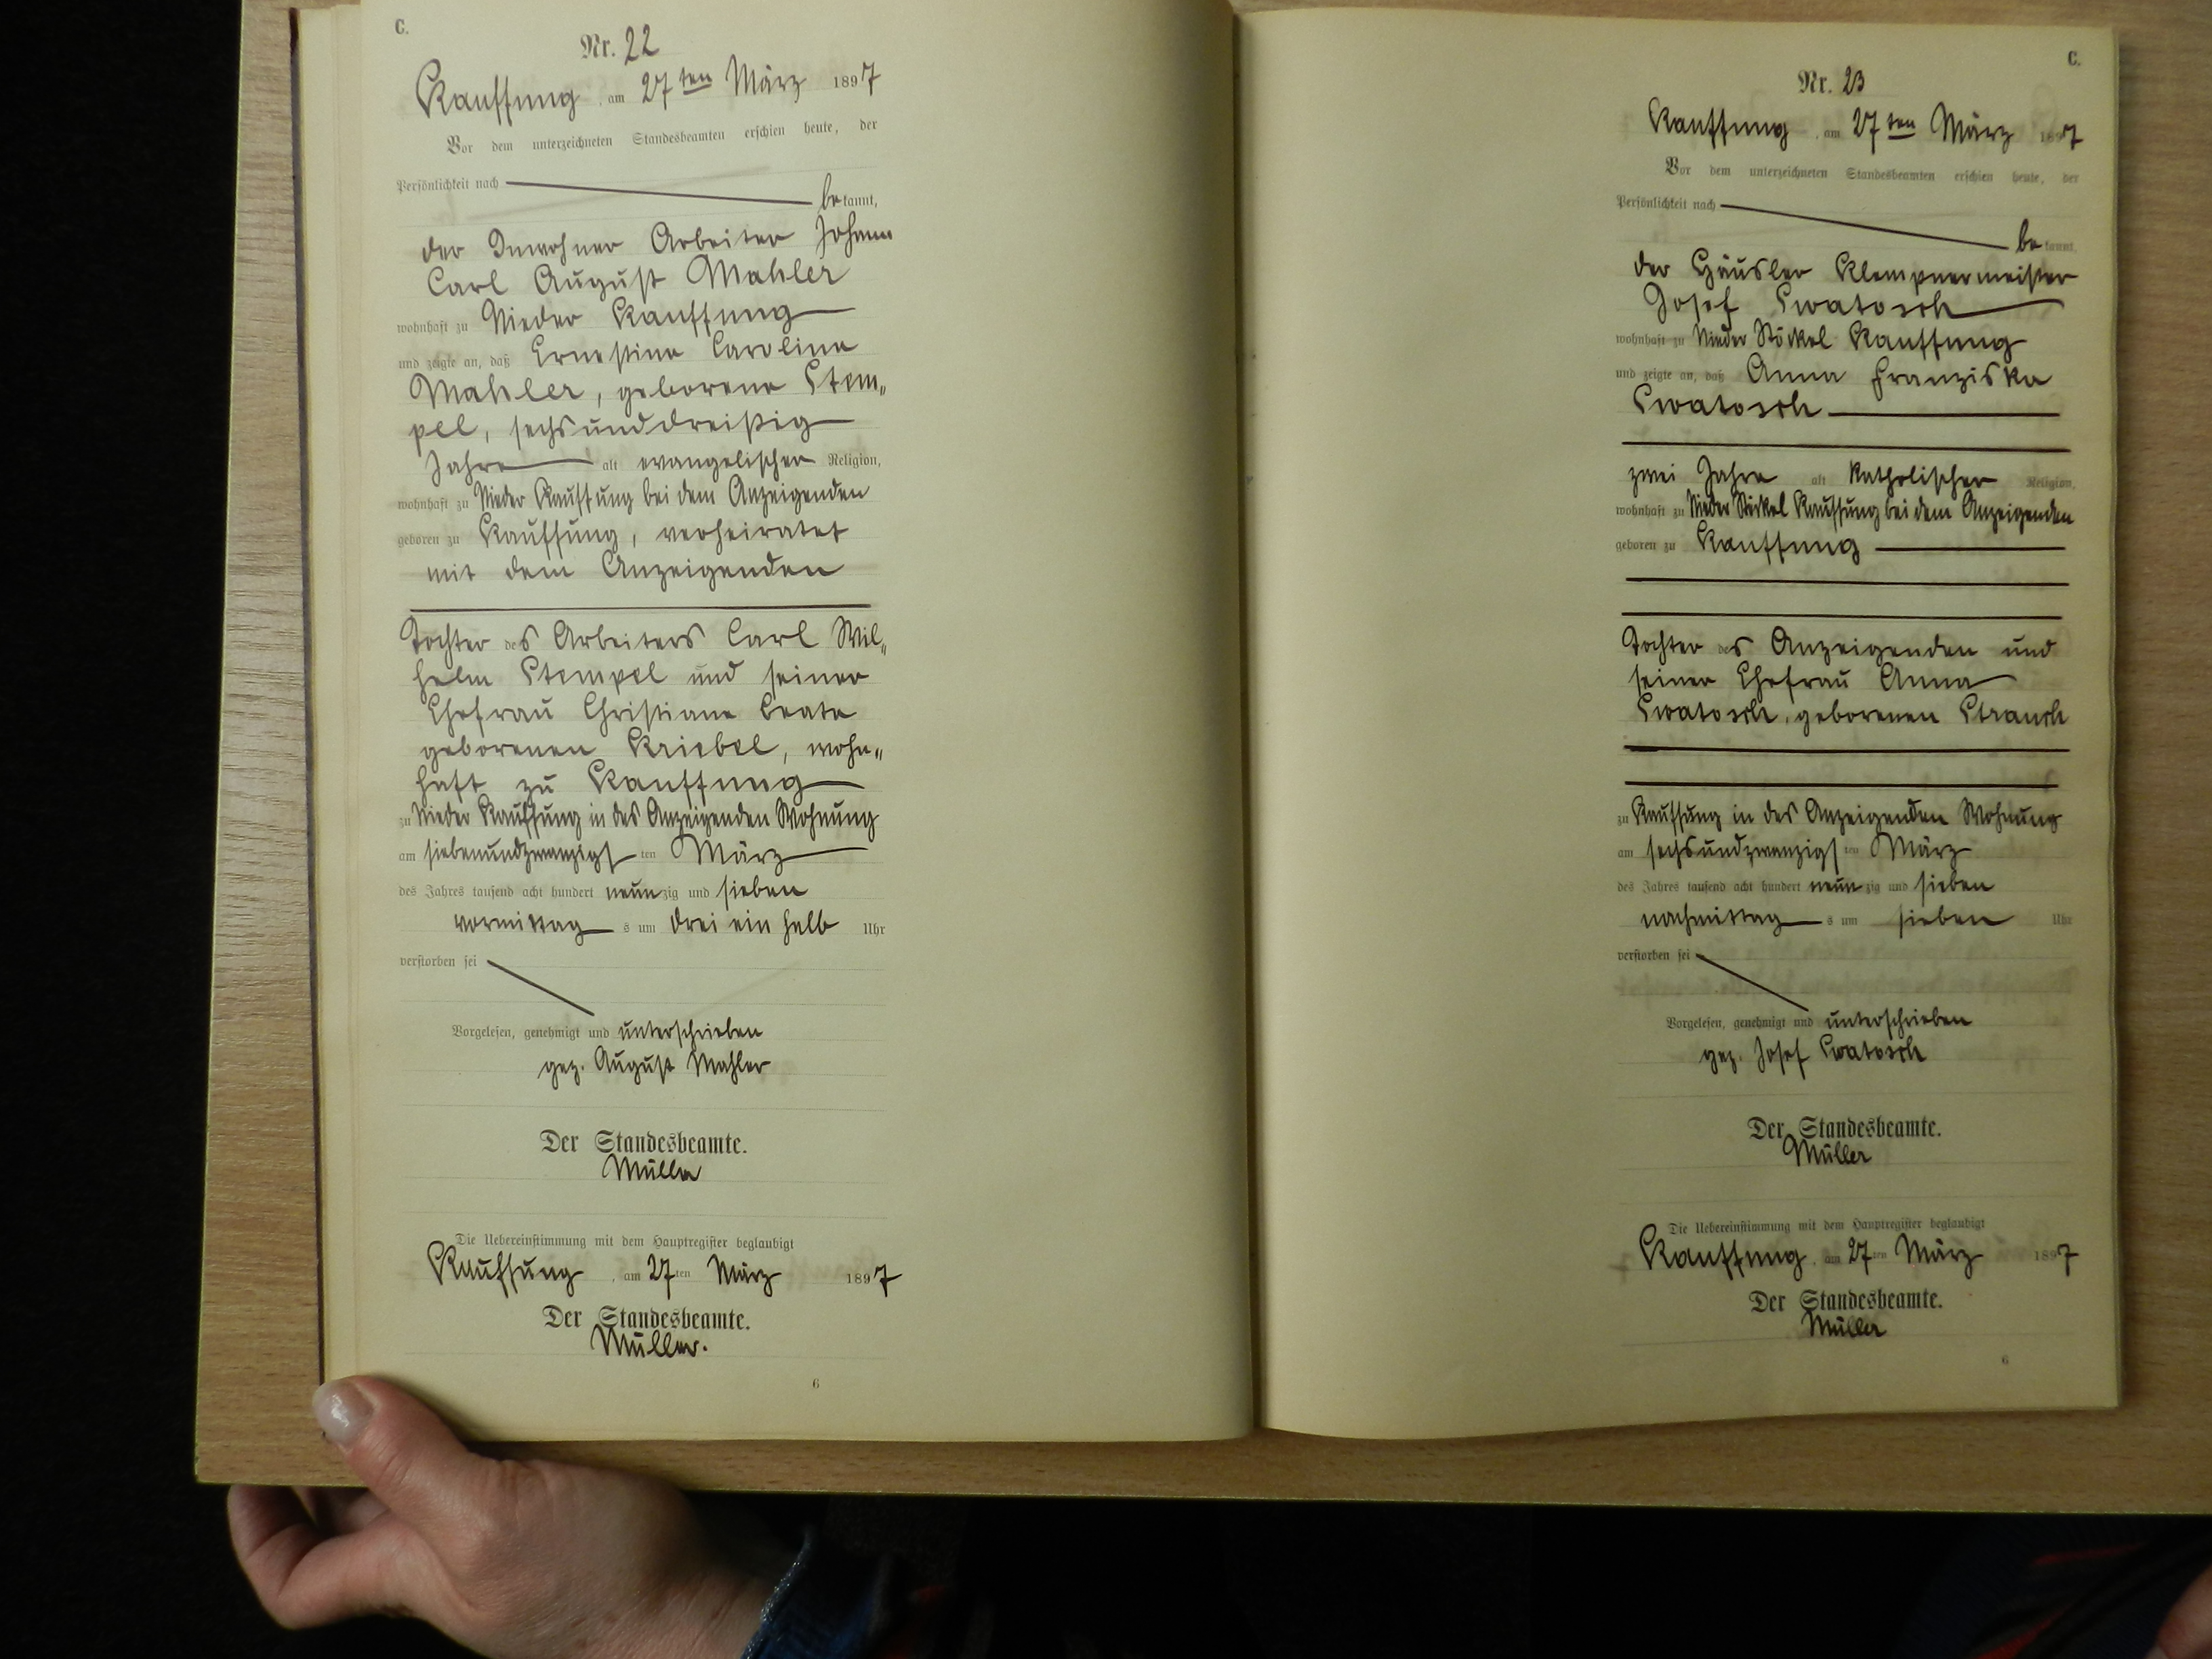 C.
Nr. 22
Kauffung, am 27ten März 1897
Vor dem unterzeichneten Standesbeamten erschien heute, der
Persönlichkeit nach
bekannt,
der Inwohner Arbeiter Johann
Carl August Mahler
wohnhaft zu Nieder Kauffung
und zeigte an, daß Ernestine Caroline
Mahler, geborene Stem„
pel, sechsunddreißig
Jahre alt evangelischer Religion,
wohnhaft zu Nieder Kauffung bei dem Anzeigenden
geboren zu Kauffung, verheiratet
mit dem Anzeigenden
Tochter des Arbeiters Carl Wil„
helm Stempel und seiner
Ehefrau Christiane Beate
geborenen Kriebel, wohn„
haft zu Kauffung
zu Nieder Kauffung in des Anzeigenden Wohnung
am siebenundzwanzigsten März
des Jahres tausend acht hundert neunzig und sieben
vormittags um drei ein halb Uhr
verstorben sei
Vorgelesen, genehmigt und unterschrieben
gez. August Mahler
Der Standesbeamte.
Müller
Die Uebereinstimmung mit dem Hauptregister beglaubigt
Kauffung, am 27ten März 1897
Der Standesbeamte.
Müller.
6
C.
Nr. 23
Kauffung, am 27ten März 1897
Vor dem unterzeichneten Standesbeamten erschien heute, der
Persönlichkeit nach
bekannt,
der Häusler Klempnermeister
Josef Swatosch
wohnhaft zu Nieder Stöckel Kauffung
und zeigte an, daß Anna Franziska
Swatosch
zwei Jahre alt katholischer Religion,
wohnhaft zu Nieder Stöckel Kauffung bei dem Anzeigenden
geboren zu Kauffung
Tochter des Anzeigenden und
seiner Ehefrau Anna
Swatosch, geborenen Strauch
zu Kauffung in des Anzeigenden Wohnung
am sechsundzwanzigsten März
des Jahres tausend acht hundert neunzig und sieben
nachmittags um sieben Uhr
verstorben sei
Vorgelesen, genehmigt und unterschrieben
gez. Josef Swatosch
Der Standesbeamte.
Müller
Die Uebereinstimmung mit dem Hauptregister beglaubigt
Kauffung, am 27ten März 1897
Der Standesbeamte.
Müller
6